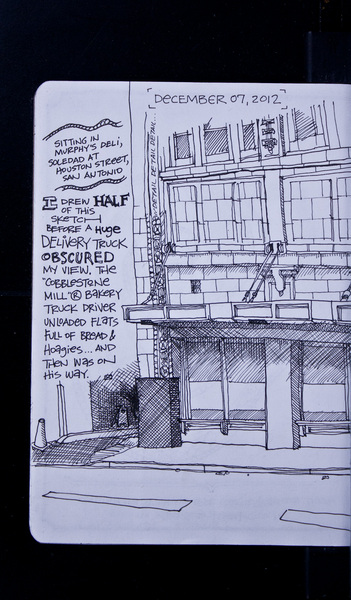 DECEMBER 07, 2012
SITTING IN
MURPHY'S DELI,
SOLEDAD AT
HOUSTON STREET,
SAN ANTONIO
I DREW HALF
OF THIS
SKETCH
BEFORE A HUGE
DELIVERY TRUCK
OBSCURED
MY VIEW. THE
"COBBLESTONE
MILL"® BAKERY
TRUCK DRIVER
UNLOADED FLATS
FULL OF BREAD &
HOAGIES... AND
THEN WAS ON
HIS WAY.
DETAIL DETAIL DETAIL...